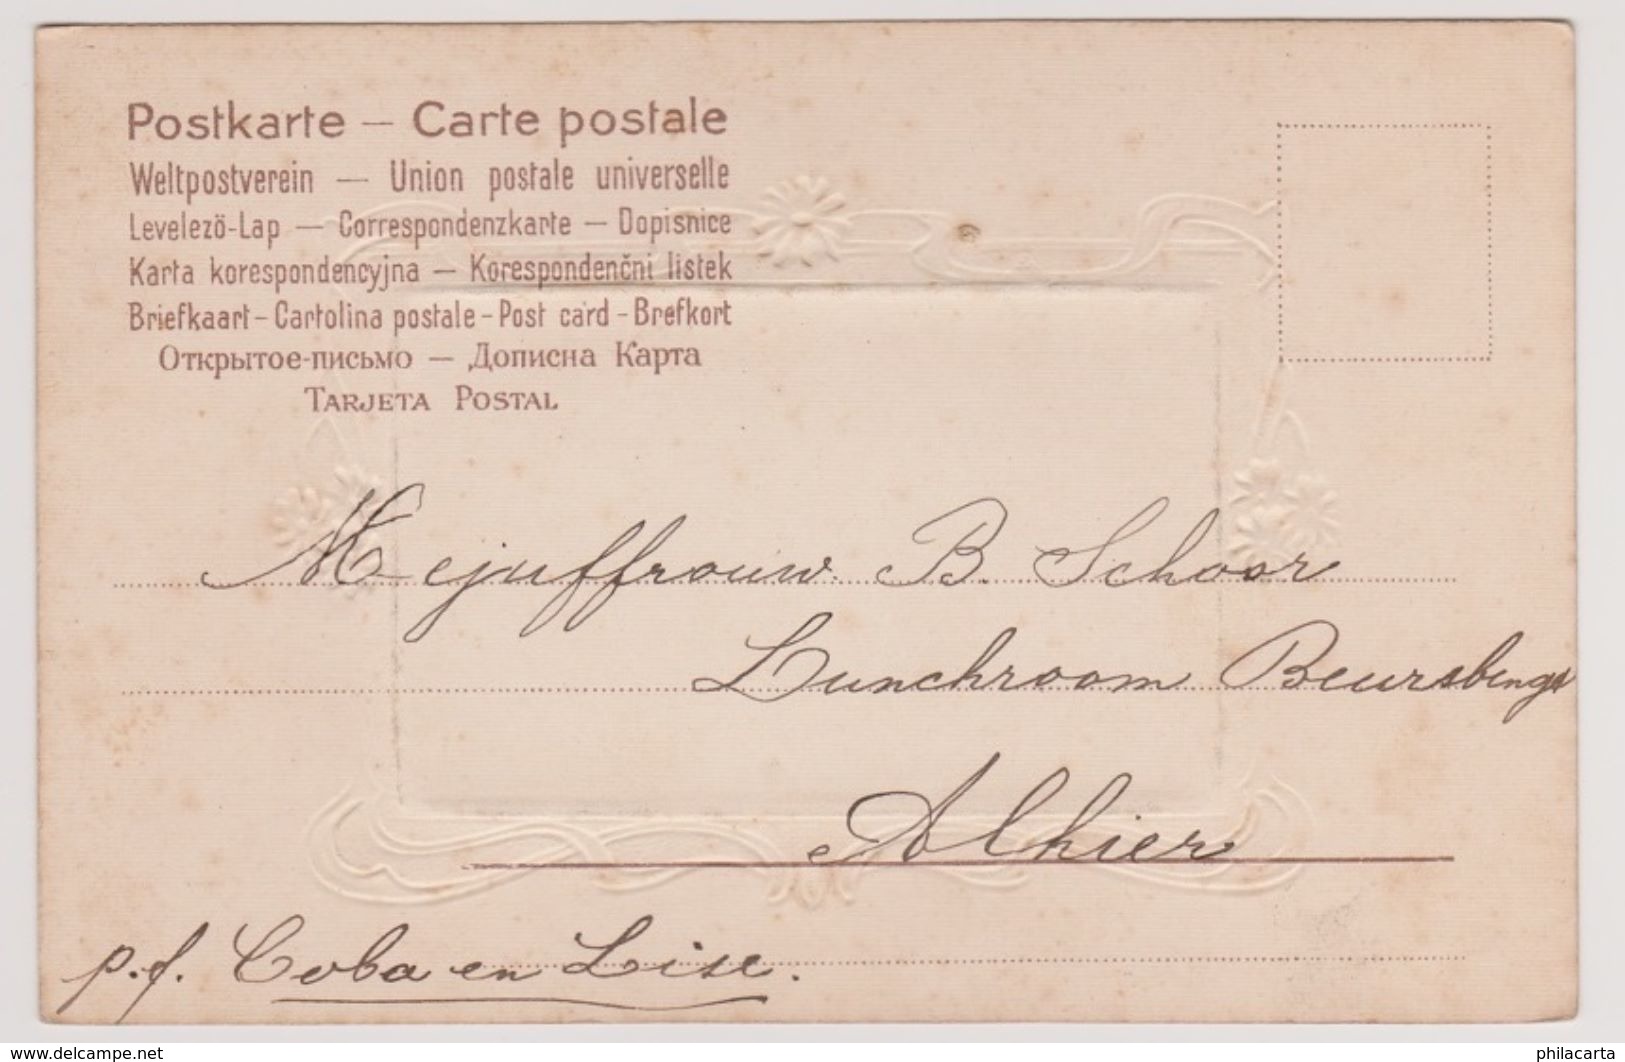 Postkarte – Carte postale
Weltpostverein — Union postale universelle
Levelezö-Lap — Correspondenzkarte – Dopisnice
Karta korespondencyjna – Korespondenční listek
Briefkaart – Cartolina postale – Post card – Brefkort
Открытое-письмо — Дописна Карта
TARJETA POSTAL
Mejuffrouw B. Schoor
Lunchroom Beursbengel
Alhier
p.f. Coba en Lise.
www.delcampe.net
philacarta